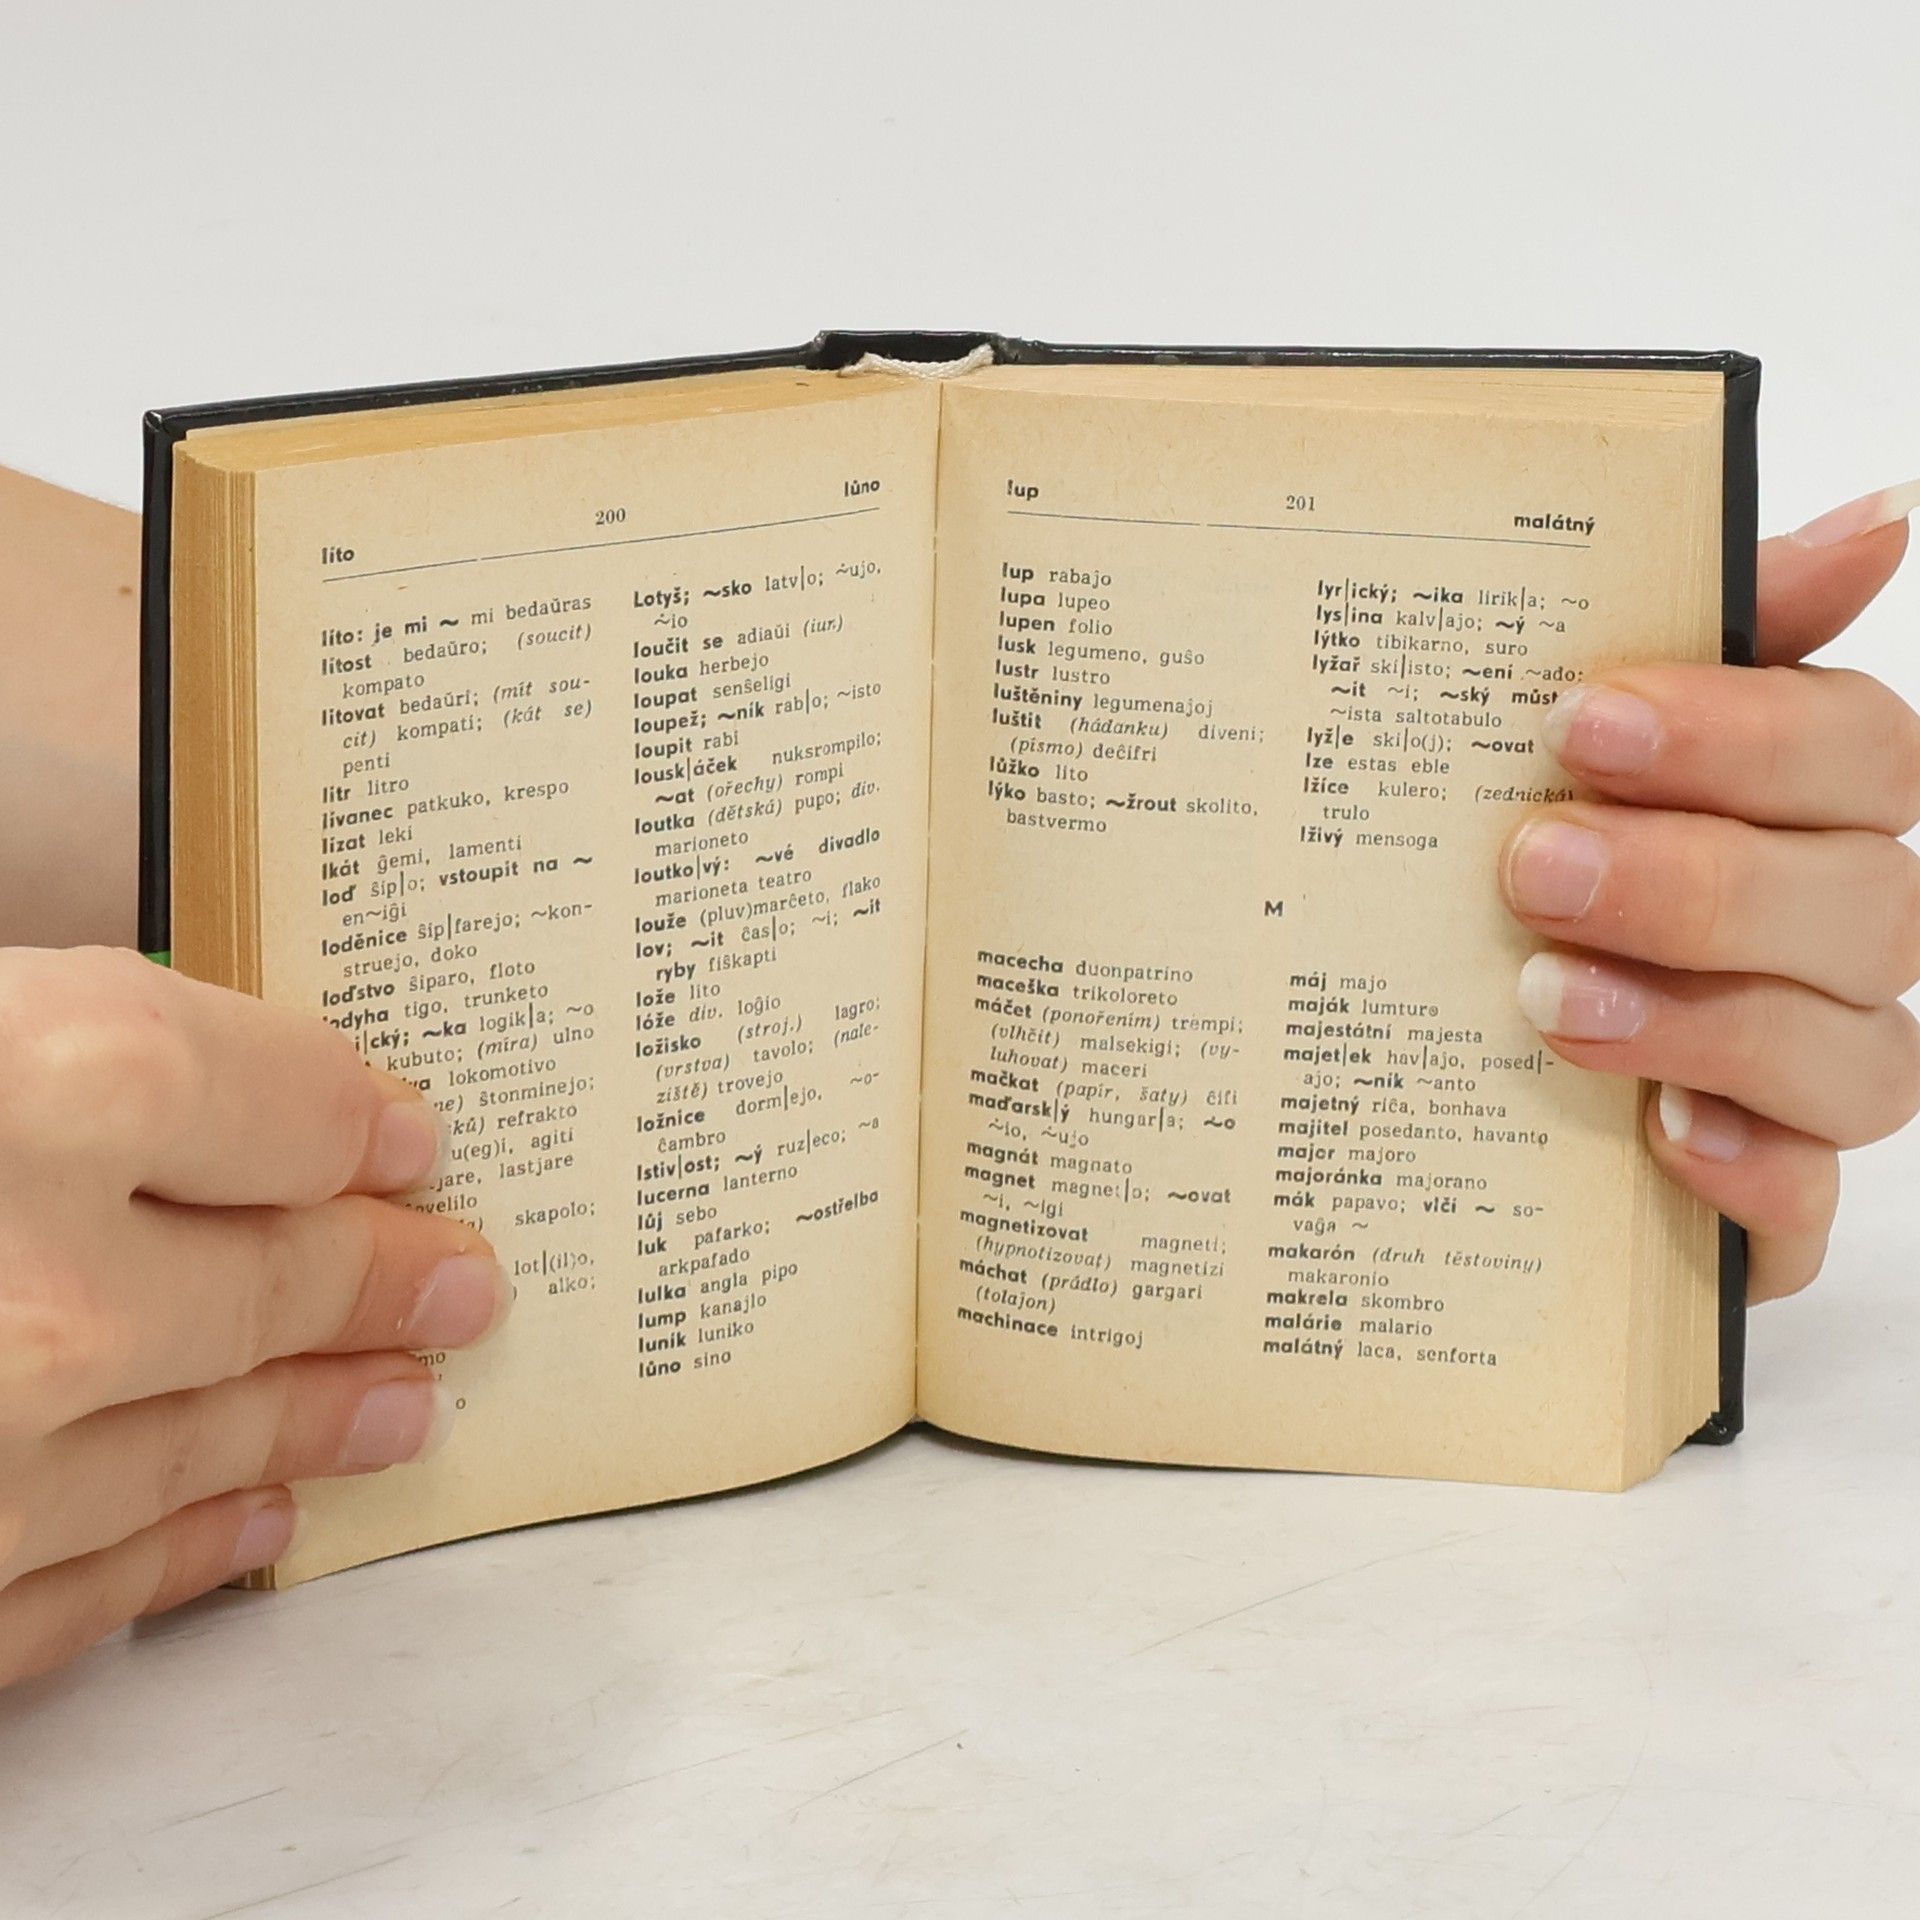 líto
200
lůno
líto: je mi ~ mi bedaŭras
lítost bedaŭro; (soucit)
kompato
litovat bedaŭri; (mít sou-
cit) kompati; (kát se)
penti
litr litro
lívanec patkuko, krespo
lízat leki
lkát ĝemi, lamenti
loď ŝip|o; vstoupit na ~
en~iĝi
loděnice ŝip|farejo; ~kon-
struejo, doko
loďstvo ŝiparo, floto
tigo, trunketo
~ka logik|a; ~o
kubuto; (míra) ulno
lokomotivo
ŝtonminejo;
refrakto
agiti
lastjare
skapolo;
lot|(il)o,
alko;
Lotyš; ~sko latv|o; ~̇ujo,
~̇io
loučit se adiaŭi (iur.)
louka herbejo
loupat senŝeligi
loupež; ~ník rab|o; ~isto
loupit rabi
lousk|áček nuksrompilo;
~at (ořechy) rompi
loutka (dětská) pupo; div.
marioneto
loutko|vý: ~vé divadlo
marioneta teatro
louže (pluv)marĉeto, flako
lov; ~it ĉas|o; ~i; ~it
ryby fiŝkapti
lože lito
lóže div. loĝio
ložisko (stroj.) lagro;
(vrstva) tavolo; (nale-
ziště) trovejo
ložnice dorm|ejo, ~o-
ĉambro
lstiv|ost; ~ý ruz|eco; ~a
lucerna lanterno
lůj sebo
luk pafarko; ~ostřelba
arkpafado
lulka angla pipo
lump kanajlo
luník luniko
lůno sino
lup
201
malátný
lup rabaĵo
lupa lupeo
lupen folio
lusk legumeno, guŝo
lustr lustro
luštěniny legumenaĵoj
luštit (hádanku) diveni;
(písmo) deĉifri
lůžko lito
lýko basto; ~žrout skolito,
bastvermo
lyr|ický; ~ika lirik|a; ~o
lys|ina kalv|aĵo; ~ý ~a
lýtko tibikarno, suro
lyžař ski|isto; ~ení ~ado;
~it ~i; ~ský můst
~ista saltotabulo
lyž|e ski|o(j); ~ovat
lze estas eble
lžíce kulero; (zednická)
trulo
lživý mensoga
M
macecha duonpatrino
maceška trikoloreto
máčet (ponořením) trempi;
(vlhčit) malsekigi; (vy-
luhovat) maceri
mačkat (papír, šaty) ĉifi
maďarsk|ý hungar|a; ~̇o
~̇io, ~̇ujo
magnát magnato
magnet magnet|o; ~ovat
~i, ~igi
magnetizovat magneti;
(hypnotizovat) magnetizi
máchat (prádlo) gargari
(tolaĵon)
machinace intrigoj
máj majo
maják lumturo
majestátní majesta
majet|ek hav|aĵo, posed|-
aĵo; ~ník ~anto
majetný riĉa, bonhava
majitel posedanto, havanto
major majoro
majoránka majorano
mák papavo; vlčí ~ so-
vaĝa ~
makarón (druh těstoviny)
makaronio
makrela skombro
malárie malario
malátný laca, senforta